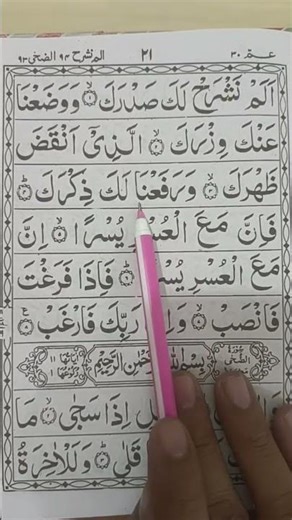 عـمّ ٣٠ ٢١ الم نشرح ٩٤ الضحى ٩٣
اَلَمْ نَشْرَحْ لَكَ صَدْرَكَ ۙ۝۱ وَوَضَعْنَا
عَنْكَ وِزْرَكَ ۙ۝۲ الَّذِىْٓ اَنْقَضَ
ظَهْرَكَ ۙ۝۳ وَرَفَعْنَا لَكَ ذِكْرَكَ ؕ۝۴
فَاِنَّ مَعَ الْعُسْرِ يُسْرًا ۙ۝۵ اِنَّ
مَعَ الْعُسْرِ ؕ۝۶ فَاِذَا فَرَغْتَ
فَانْصَبْ ۙ۝۷ رَبِّكَ فَارْغَبْ ۝۸
سُوْرَةُ الضُّحٰى بِسْمِ اللهِ الرَّحِيْمِ
اِذَا سَجٰى ۙ۝۲ مَا
قَلٰى ؕ۝۳ وَلَلْاٰخِرَةُ